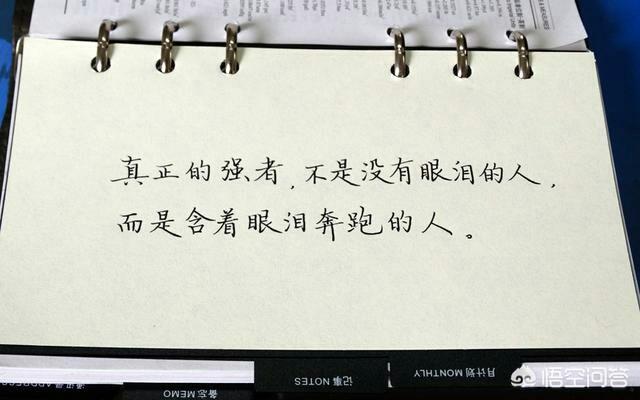 真正的强者,不是没有眼泪的人,
而是含着眼泪奔跑的人。
月计划 MONTHLY
记事 NOTES
备忘 MEMO
悟空问答